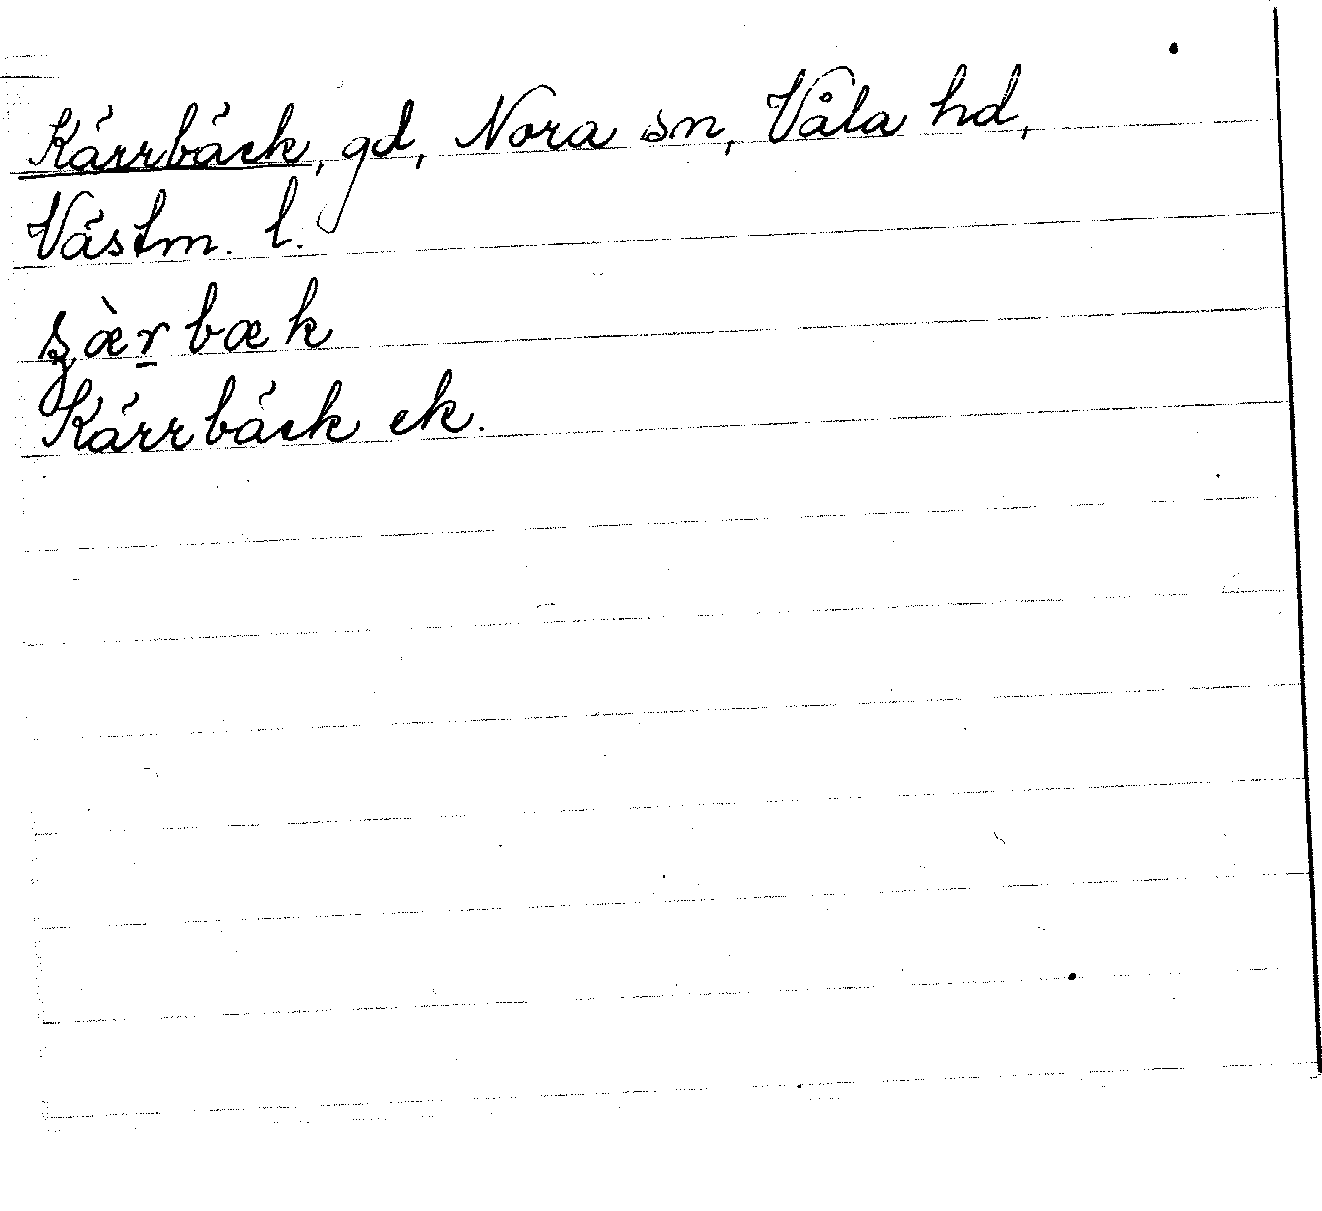 Kärrbäck, gd, Nora sn, Våla hd,
Västm. l.
ʂæ̀r̲bæk
Kärrbäck ek.